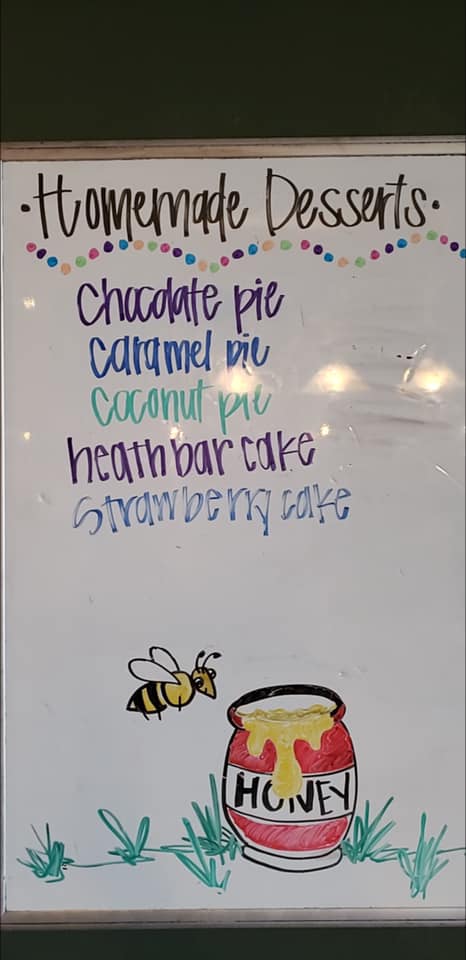 ·Homemade Desserts·
Chocolate pie
Caramel pie
Coconut pie
heath bar cake
Strawberry cake
HONEY